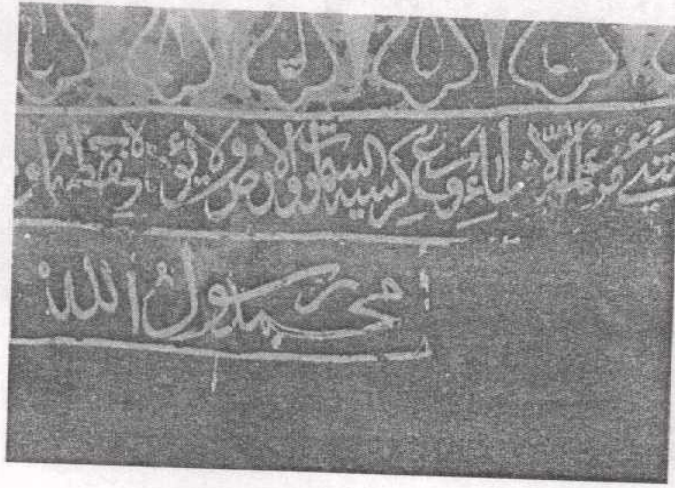 بشيء من علمه الا بما شاء وسع كرسيه السموات والارض ولا يؤده حفظهما
محمد رسول الله